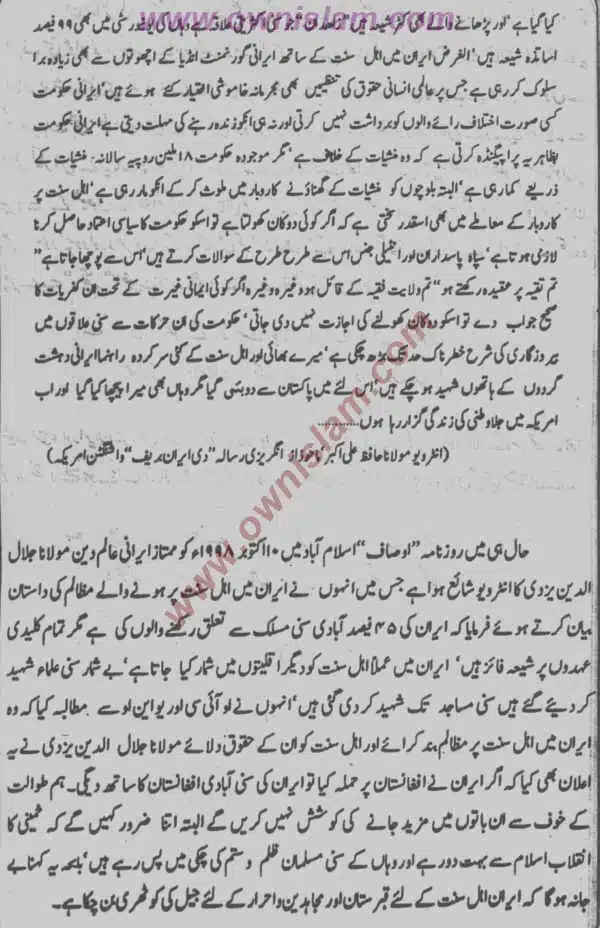 www.ownislam.com
کیا گیا ہے اور پڑھانے والے بھی کٹر شیعہ ہیں جو سنی اکثریتی علاقہ ہے وہاں کی یونیورسٹی میں بھی ۹۹ فیصد
اساتذہ شیعہ ہیں الغرض ایران میں اہل سنت کے ساتھ ایرانی گورنمنٹ انڈیا کے اچھوتوں سے بھی زیادہ برا
سلوک کر رہی ہے جس پر عالمی انسانی حقوق کی تنظیمیں بھی مجرمانہ خاموشی اختیار کئے ہوئے ہیں' ایرانی حکومت
کسی صورت اختلاف رائے والوں کو برداشت نہیں کرتی اور نہ ہی انکو زندہ رہنے کی مہلت دیتی ہے ایرانی حکومت
بظاہر یہ پراپیگنڈہ کرتی ہے کہ وہ منشیات کے خلاف ہے' مگر موجودہ حکومت ۱۸ ملین روپیہ سالانہ منشیات کے
ذریعے کما رہی ہے' البتہ بلوچوں کو منشیات کے گھناؤنے کاروبار میں ملوث کر کے انکو مار رہی ہے' اہل سنت پر
کاروبار کے معاملے میں بھی اسقدر سختی ہے کہ اگر کوئی دوکان کھولتا ہے تو اسکو حکومت کا سیاسی اعتماد حاصل کرنا
لازمی ہوتا ہے' سپاہ پاسداران اور انٹیلی جنس اس سے طرح طرح کے سوالات کرتے ہیں' اس سے پوچھا جاتا ہے"
تم تقیہ پر عقیدہ رکھتے ہو" تم ولایت فقیہ کے قائل ہو وغیرہ وغیرہ اگر کوئی ایمانی غیرت کے تحت ان کفریات کا
صحیح جواب دے تو اسکو دوکان کھولنے کی اجازت نہیں دی جاتی' حکومت کی ان حرکات سے سنی علاقوں میں
بیروزگاری کی شرح خطرناک حد تک بڑھ چکی ہے' میرے بھائی اور اہل سنت کے کئی سرکردہ راہنما ایرانی دہشت
گردوں کے ہاتھوں شہید ہو چکے ہیں' اس لئے میں پاکستان سے دوبئی گیا مگر وہاں بھی میرا پیچھا کیا گیا اور اب
امریکہ میں جلاوطنی کی زندگی گزار رہا ہوں............
(انٹرویو مولانا حافظ علی اکبر' ماخوذ از انگریزی رسالہ "دی ایران بریف" واشنگٹن امریکہ)
حال ہی میں روزنامہ "اوصاف" اسلام آباد میں ۱۰ اکتوبر ۱۹۹۸ء کو ممتاز ایرانی عالم دین مولانا جلال
الدین یزدی کا انٹرویو شائع ہوا ہے جس میں انہوں نے ایران میں اہل سنت پر ہونے والے مظالم کی داستان
بیان کرتے ہوئے فرمایا کہ ایران کی ۴۵ فیصد آبادی سنی مسلک سے تعلق رکھنے والوں کی ہے مگر تمام کلیدی
عہدوں پر شیعہ فائز ہیں' ایران میں عملاً اہل سنت کو دیگر اقلیتوں میں شمار کیا جاتا ہے' بے شمار سنی علماء شہید
کر دیئے گئے ہیں سنی مساجد تک شہید کر دی گئی ہیں' انہوں نے او آئی سی اور یو این او سے مطالبہ کیا کہ وہ
ایران میں اہل سنت پر مظالم بند کرائے اور اہل سنت کو ان کے حقوق دلائے مولانا جلال الدین یزدی نے یہ
اعلان بھی کیا کہ اگر ایران نے افغانستان پر حملہ کیا تو ایران کی سنی آبادی افغانستان کا ساتھ دیگی۔ ہم طوالت
کے خوف سے ان باتوں میں مزید جانے کی کوشش نہیں کریں گے البتہ اتنا ضرور کہیں گے کہ خمینی کا
انقلاب اسلام سے بہت دور ہے اور وہاں کے سنی مسلمان ظلم و ستم کی چکی میں پس رہے ہیں' بلکہ یہ کہنا بے
جا نہ ہوگا کہ ایران اہل سنت کے لئے قبرستان اور مجاہدین و احرار کے لئے جیل کی کوٹھری بن چکا ہے۔
www.ownislam.com